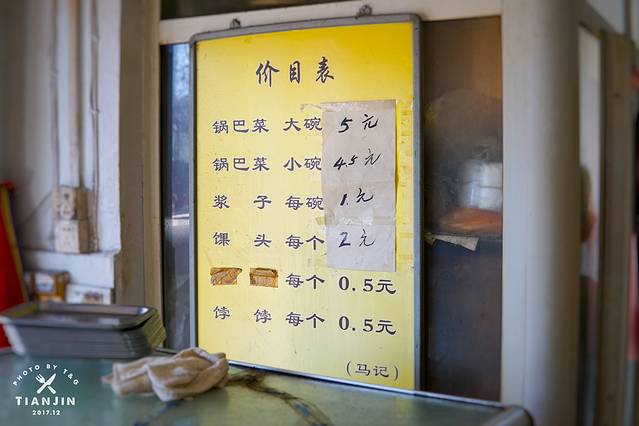 价目表
锅巴菜 大碗 5元
锅巴菜 小碗 4.5元
浆 子 每碗 1.元
馃 头 每个 2元
每个 0.5元
饽 饽 每个 0.5元
(马记)
PHOTO BY T&G
TIANJIN
2017.12